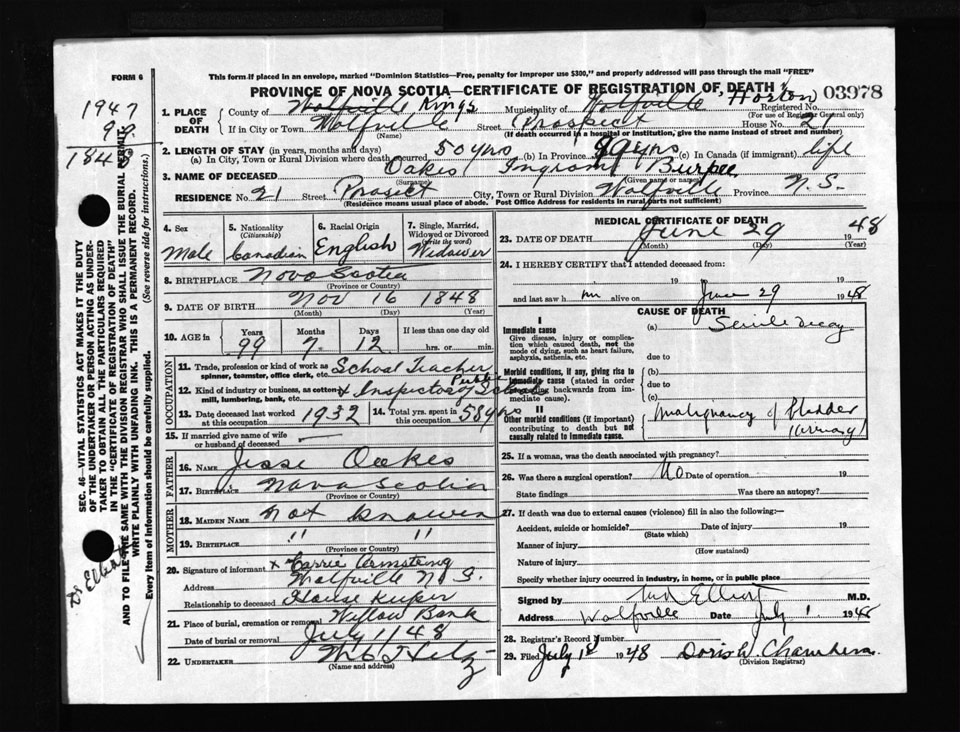 FORM 6
This form if placed in an envelope, marked "Dominion Statistics—Free, penalty for improper use $300," and properly addressed will pass through the mail "FREE"
PROVINCE OF NOVA SCOTIA—CERTIFICATE OF REGISTRATION OF DEATH
03978
1947
99
1848
1. PLACE OF DEATH County of Wolfville Kings Municipality of Wolfville Horton Registered No.
(For use of Registrar General only)
If in City or Town Wolfville (Name) Street Prospect House No. 21
(If death occurred in a hospital or institution, give the name instead of street and number)
2. LENGTH OF STAY (in years, months and days)
(a) In City, Town or Rural Division where death occurred 50 yrs (b) In Province 99 yrs (c) In Canada (if immigrant) life
3. NAME OF DECEASED Oakes Ingram Burpee
(Surname) (Given name or names)
RESIDENCE No. 21 Street City, Town or Rural Division Wolfville Province N.S.
(Residence means usual place of abode. Post Office Address for residents in rural parts not sufficient)
4. Sex Male
5. Nationality (Citizenship) Canadian
6. Racial Origin English
7. Single, Married, Widowed or Divorced (write the word) Widower
8. BIRTHPLACE Nova Scotia
(Province or Country)
9. DATE OF BIRTH Nov 16 1848
(Month) (Day) (Year)
10. AGE in Years 99 Months 7 Days 12 If less than one day old hrs. or min.
OCCUPATION
11. Trade, profession or kind of work as spinner, teamster, office clerk, etc. School Teacher
12. Kind of industry or business, as cotton mill, lumbering, bank, etc. & Inspector of Public Schools
13. Date deceased last worked at this occupation 1932
14. Total yrs. spent in this occupation 58 yrs
15. If married give name of wife or husband of deceased
FATHER
16. NAME Jesse Oakes
17. Birthplace Nova Scotia
(Province or Country)
MOTHER
18. MAIDEN NAME Not known
19. BIRTHPLACE " "
(Province or Country)
20. Signature of informant x Carrie Armstrong
Address Wolfville N.S.
Relationship to deceased House Keeper
21. Place of burial, cremation or removal Willow Bank
Date of burial or removal July 1 / 48
22. UNDERTAKER
(Name and address)
MEDICAL CERTIFICATE OF DEATH
23. DATE OF DEATH June 29 1948
(Month) (Day) (Year)
24. I HEREBY CERTIFY that I attended deceased from:
, 19 to 19
and last saw h im alive on June 29 1948
CAUSE OF DEATH
I
Immediate cause
Give disease, injury or complication which caused death, not the mode of dying, such as heart failure, asphyxia, asthenia, etc.
(a) Senile decay
due to
Morbid conditions, if any, giving rise to immediate cause (stated in order proceeding backwards from immediate cause).
(b)
due to
(c)
II
Other morbid conditions (if important) contributing to death but not causally related to immediate cause.
Malignancy of bladder
(urinary)
25. If a woman, was the death associated with pregnancy?
26. Was there a surgical operation? No Date of operation 19
State findings Was there an autopsy?
27. If death was due to external causes (violence) fill in also the following:—
Accident, suicide or homicide? Date of injury 19
(State which)
Manner of injury
(How sustained)
Nature of injury
Specify whether injury occurred in industry, in home, or in public place
Signed by Elliott M.D.
Address Wolfville Date July 1 1948
28. Registrar's Record Number
29. Filed July 1st 1948 Doris W. Chambers
(Division Registrar)
SEC. 46—VITAL STATISTICS ACT MAKES IT THE DUTY
OF THE UNDERTAKER OR PERSON ACTING AS UNDERTAKER
TO OBTAIN ALL THE PARTICULARS REQUIRED
IN THE "CERTIFICATE OF REGISTRATION OF DEATH"
AND TO FILE THE SAME WITH THE DIVISION REGISTRAR WHO SHALL ISSUE THE BURIAL PERMIT.
WRITE PLAINLY WITH UNFADING INK. THIS IS A PERMANENT RECORD.
Every item of information should be carefully supplied. (See reverse side for instructions.)